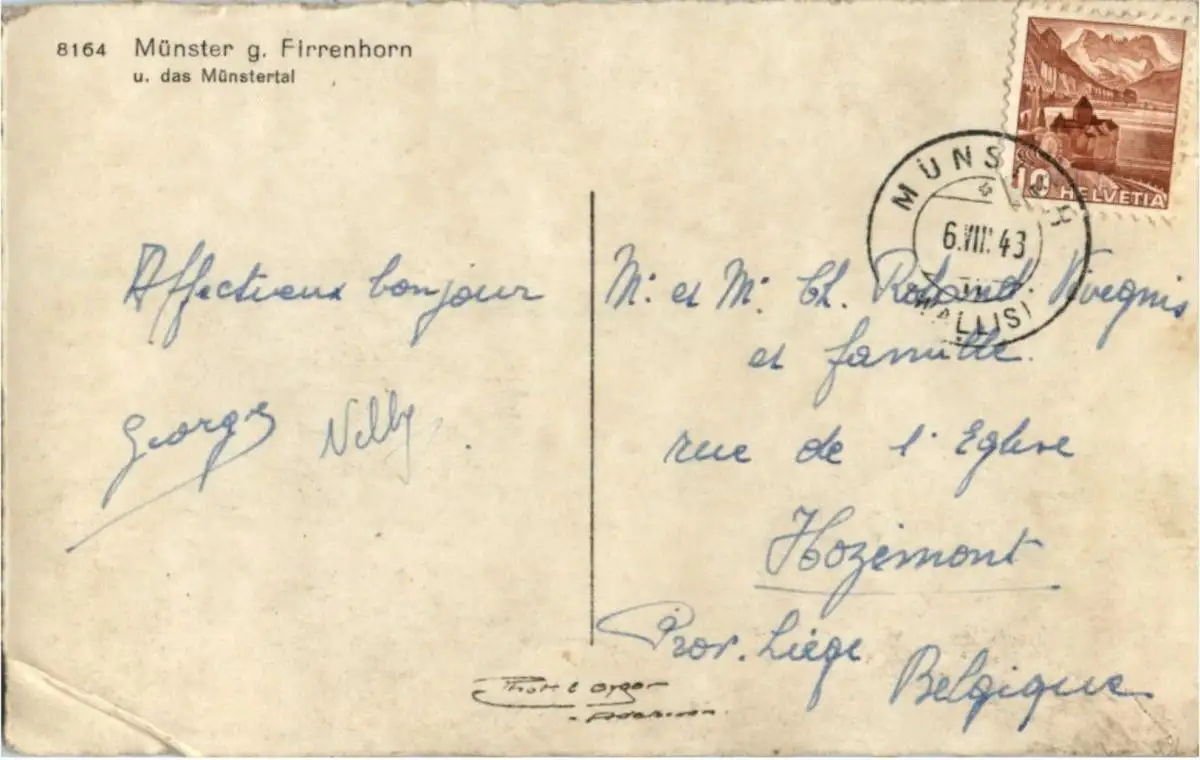 8164 Münster g. Firrenhorn
u. das Münstertal
10 HELVETIA
MÜNSTER
6.VIII.43
(WALLIS)
Affectueux bonjour
Georges Nelly
Mr et Me Ch. Roland. Vivegnis
et famille.
rue de l'Eglise
Hozémont
Prov. Liége
Belgique